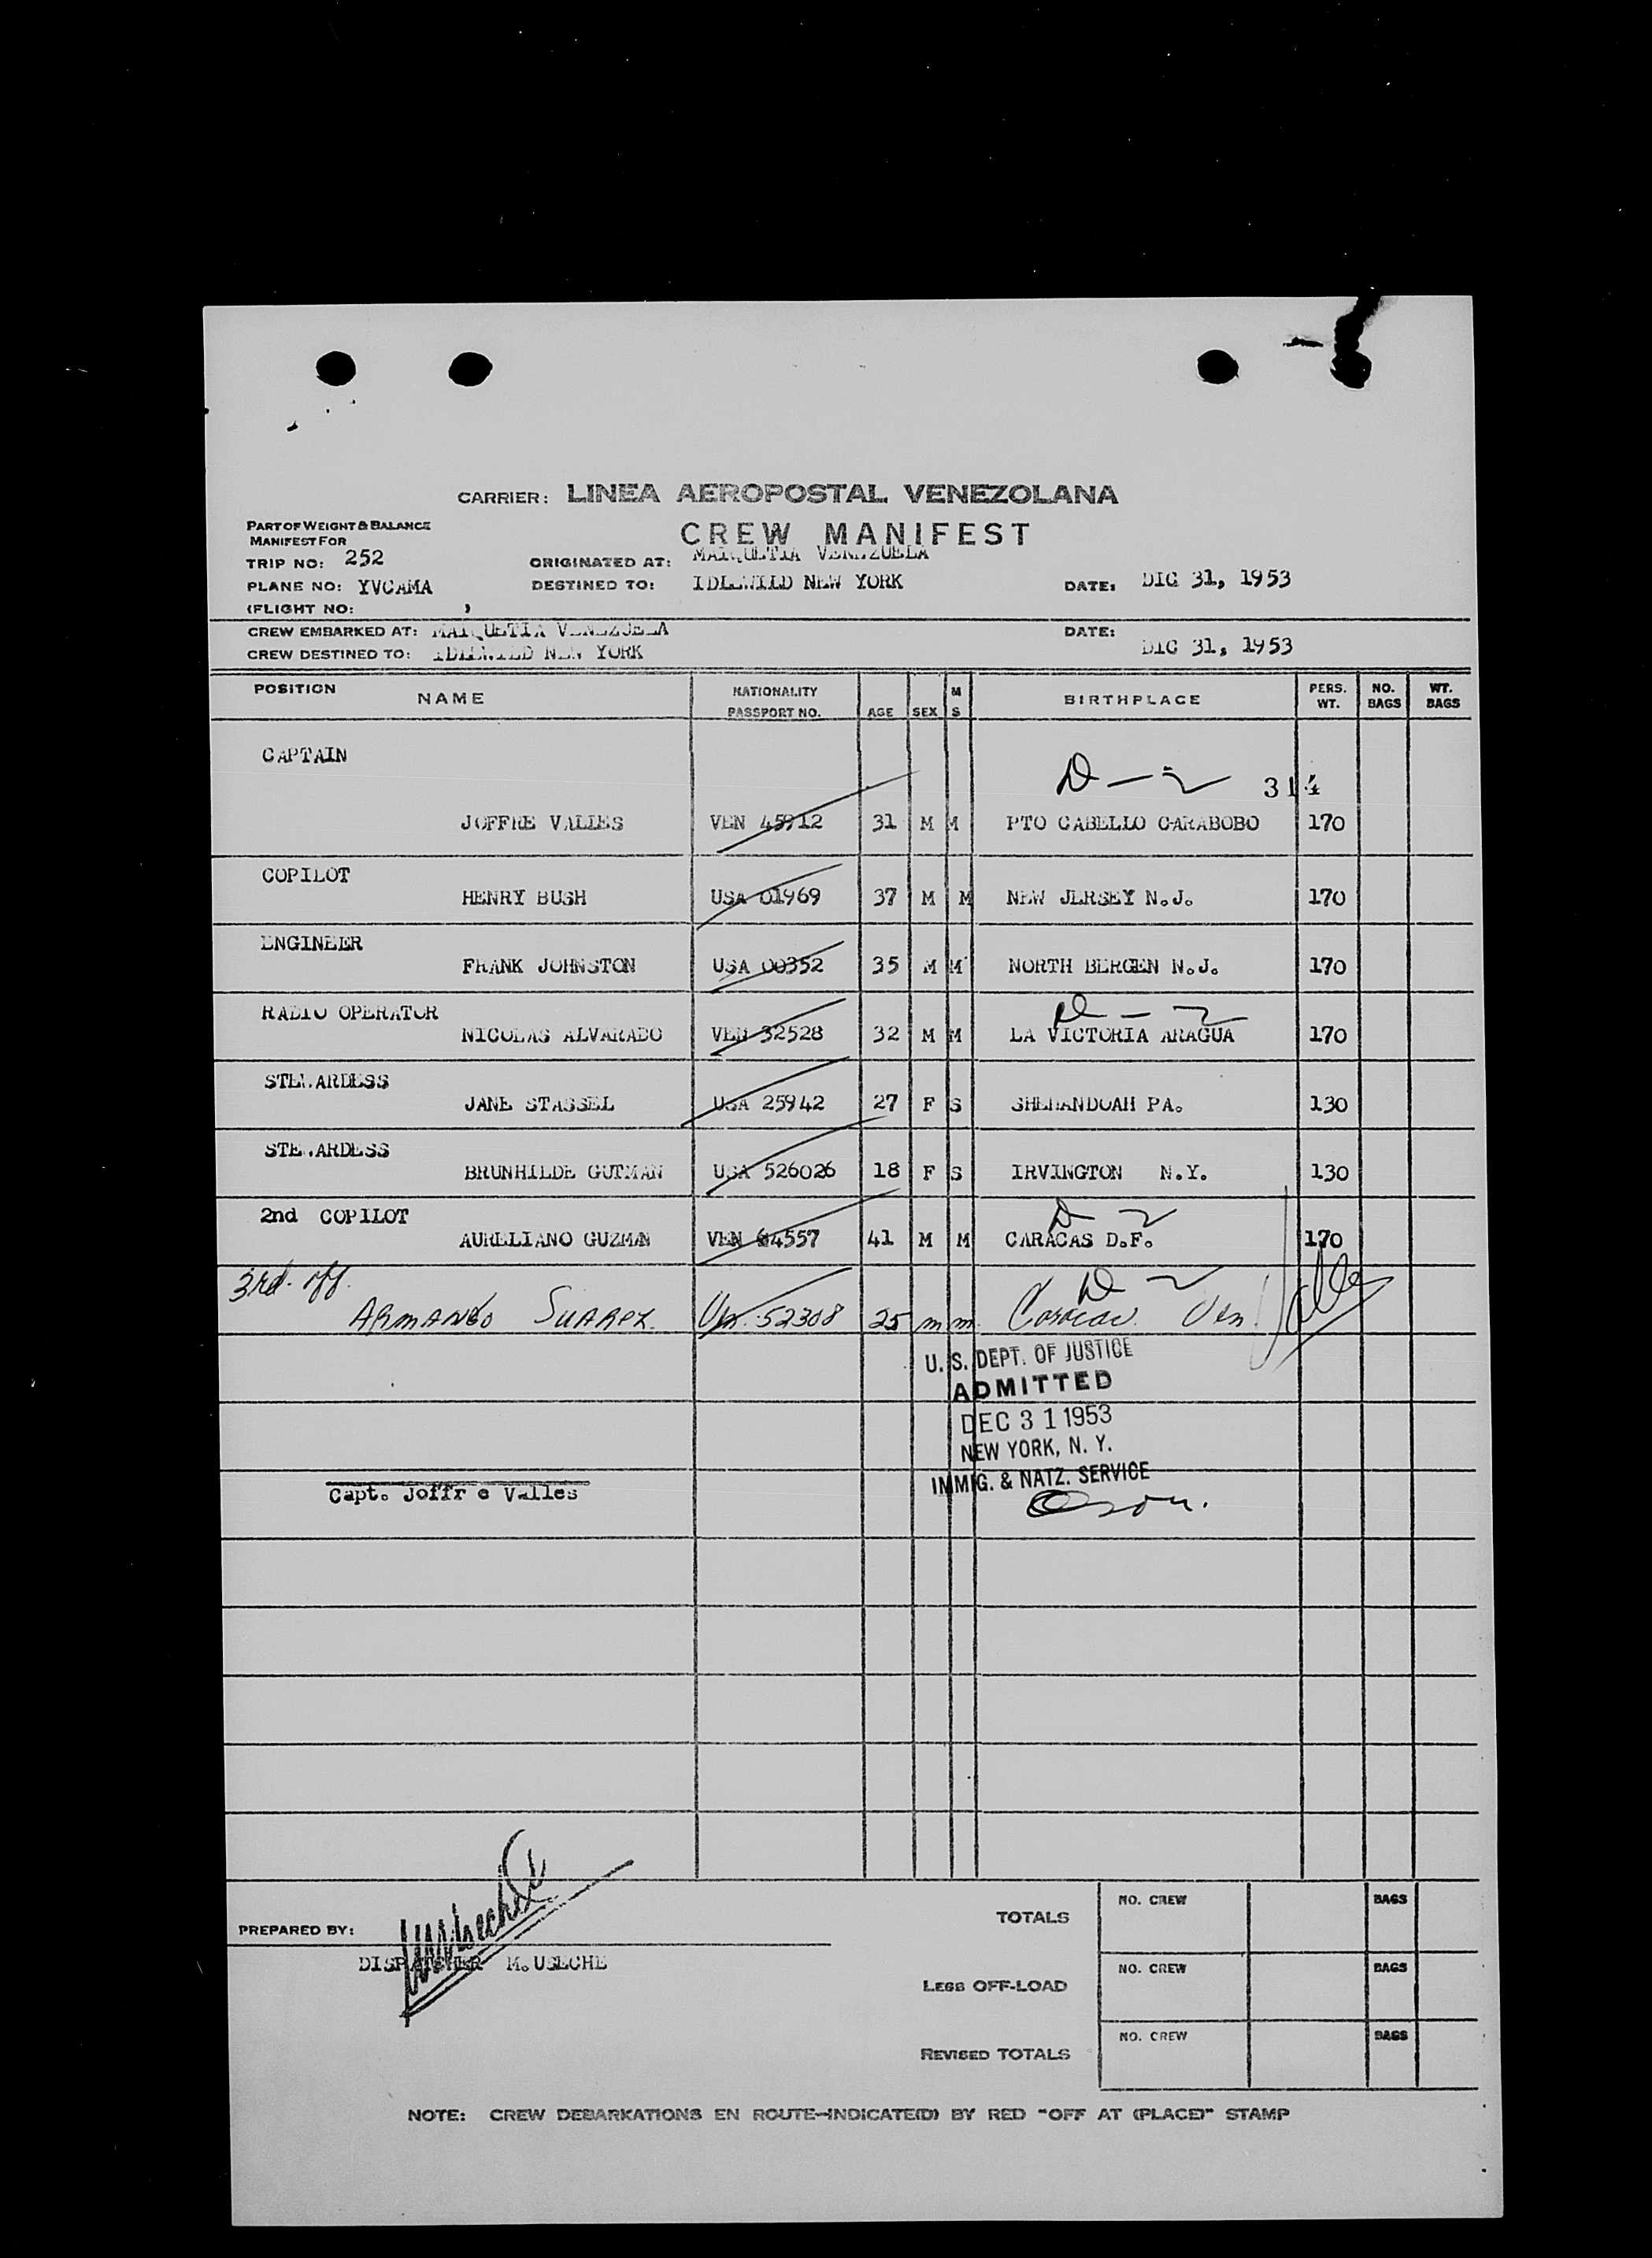 CARRIER: LINEA AEROPOSTAL VENEZOLANA
PART OF WEIGHT & BALANCE
MANIFEST FOR
CREW MANIFEST
TRIP NO: 252 ORIGINATED AT: MAIQUETIA VENEZUELA
PLANE NO: YVCAMA DESTINED TO: IDLEWILD NEW YORK DATE: DIC 31, 1953
(FLIGHT NO: )
CREW EMBARKED AT: MAIQUETIA VENEZUELA DATE:
CREW DESTINED TO: IDLEWILD NEW YORK DIC 31, 1953
POSITION NAME NATIONALITY PASSPORT NO. AGE SEX M S BIRTHPLACE PERS. WT. NO. BAGS WT. BAGS
CAPTAIN
D-2 314
JOFFRE VALLES VEN 45912 31 M M PTO CABELLO CARABOBO 170
COPILOT
HENRY BUSH USA 01969 37 M M NEW JERSEY N.J. 170
ENGINEER
FRANK JOHNSTON USA 00352 35 M M NORTH BERGEN N.J. 170
RADIO OPERATOR D-2
NICOLAS ALVARADO VEN 32528 32 M M LA VICTORIA ARAGUA 170
STEWARDESS
JANE STASSEL USA 25942 27 F S SHENANDOAH PA. 130
STEWARDESS
BRUNHILDE GUTMAN USA 526026 18 F S IRVINGTON N.Y. 130
2nd COPILOT D 2
AURELIANO GUZMAN VEN 64557 41 M M CARACAS D.F. 170
3rd. off. D 2
ARMANDO SUAREZ. Ven. 52308 25 m m. Caracas. Ven. Valles
U. S. DEPT. OF JUSTICE
ADMITTED
DEC 31 1953
NEW YORK, N. Y.
IMMIG. & NATZ. SERVICE
Capt. Joffr e Valles
PREPARED BY: MUseche
DISPATCHER M. USECHE
TOTALS NO. CREW BAGS
LESS OFF-LOAD NO. CREW BAGS
REVISED TOTALS NO. CREW BAGS
NOTE: CREW DEBARKATIONS EN ROUTE-INDICATE(D) BY RED "OFF AT (PLACE)" STAMP